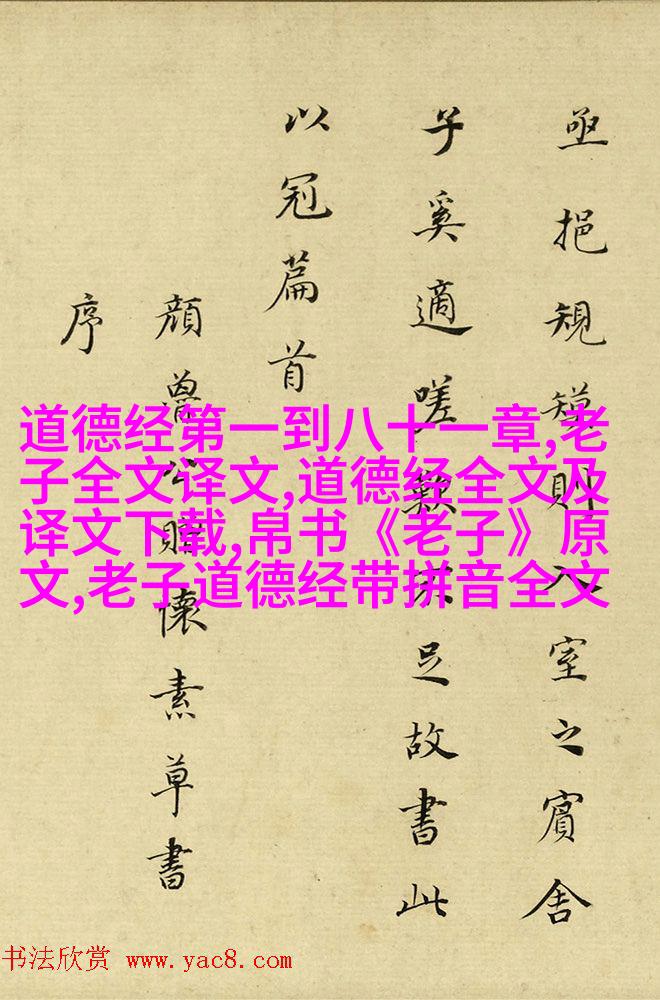 亟挹規則入室之賓舍
子奚適嗟歎不足故書此
以冠篇首
顏魯公贈懷素草書
序
道德经第一到八十一章,老
子全文译文,道德经全文及
译文下载,帛书《老子》原
文,老子道德经带拼音全文
书法欣赏 www.yac8.com